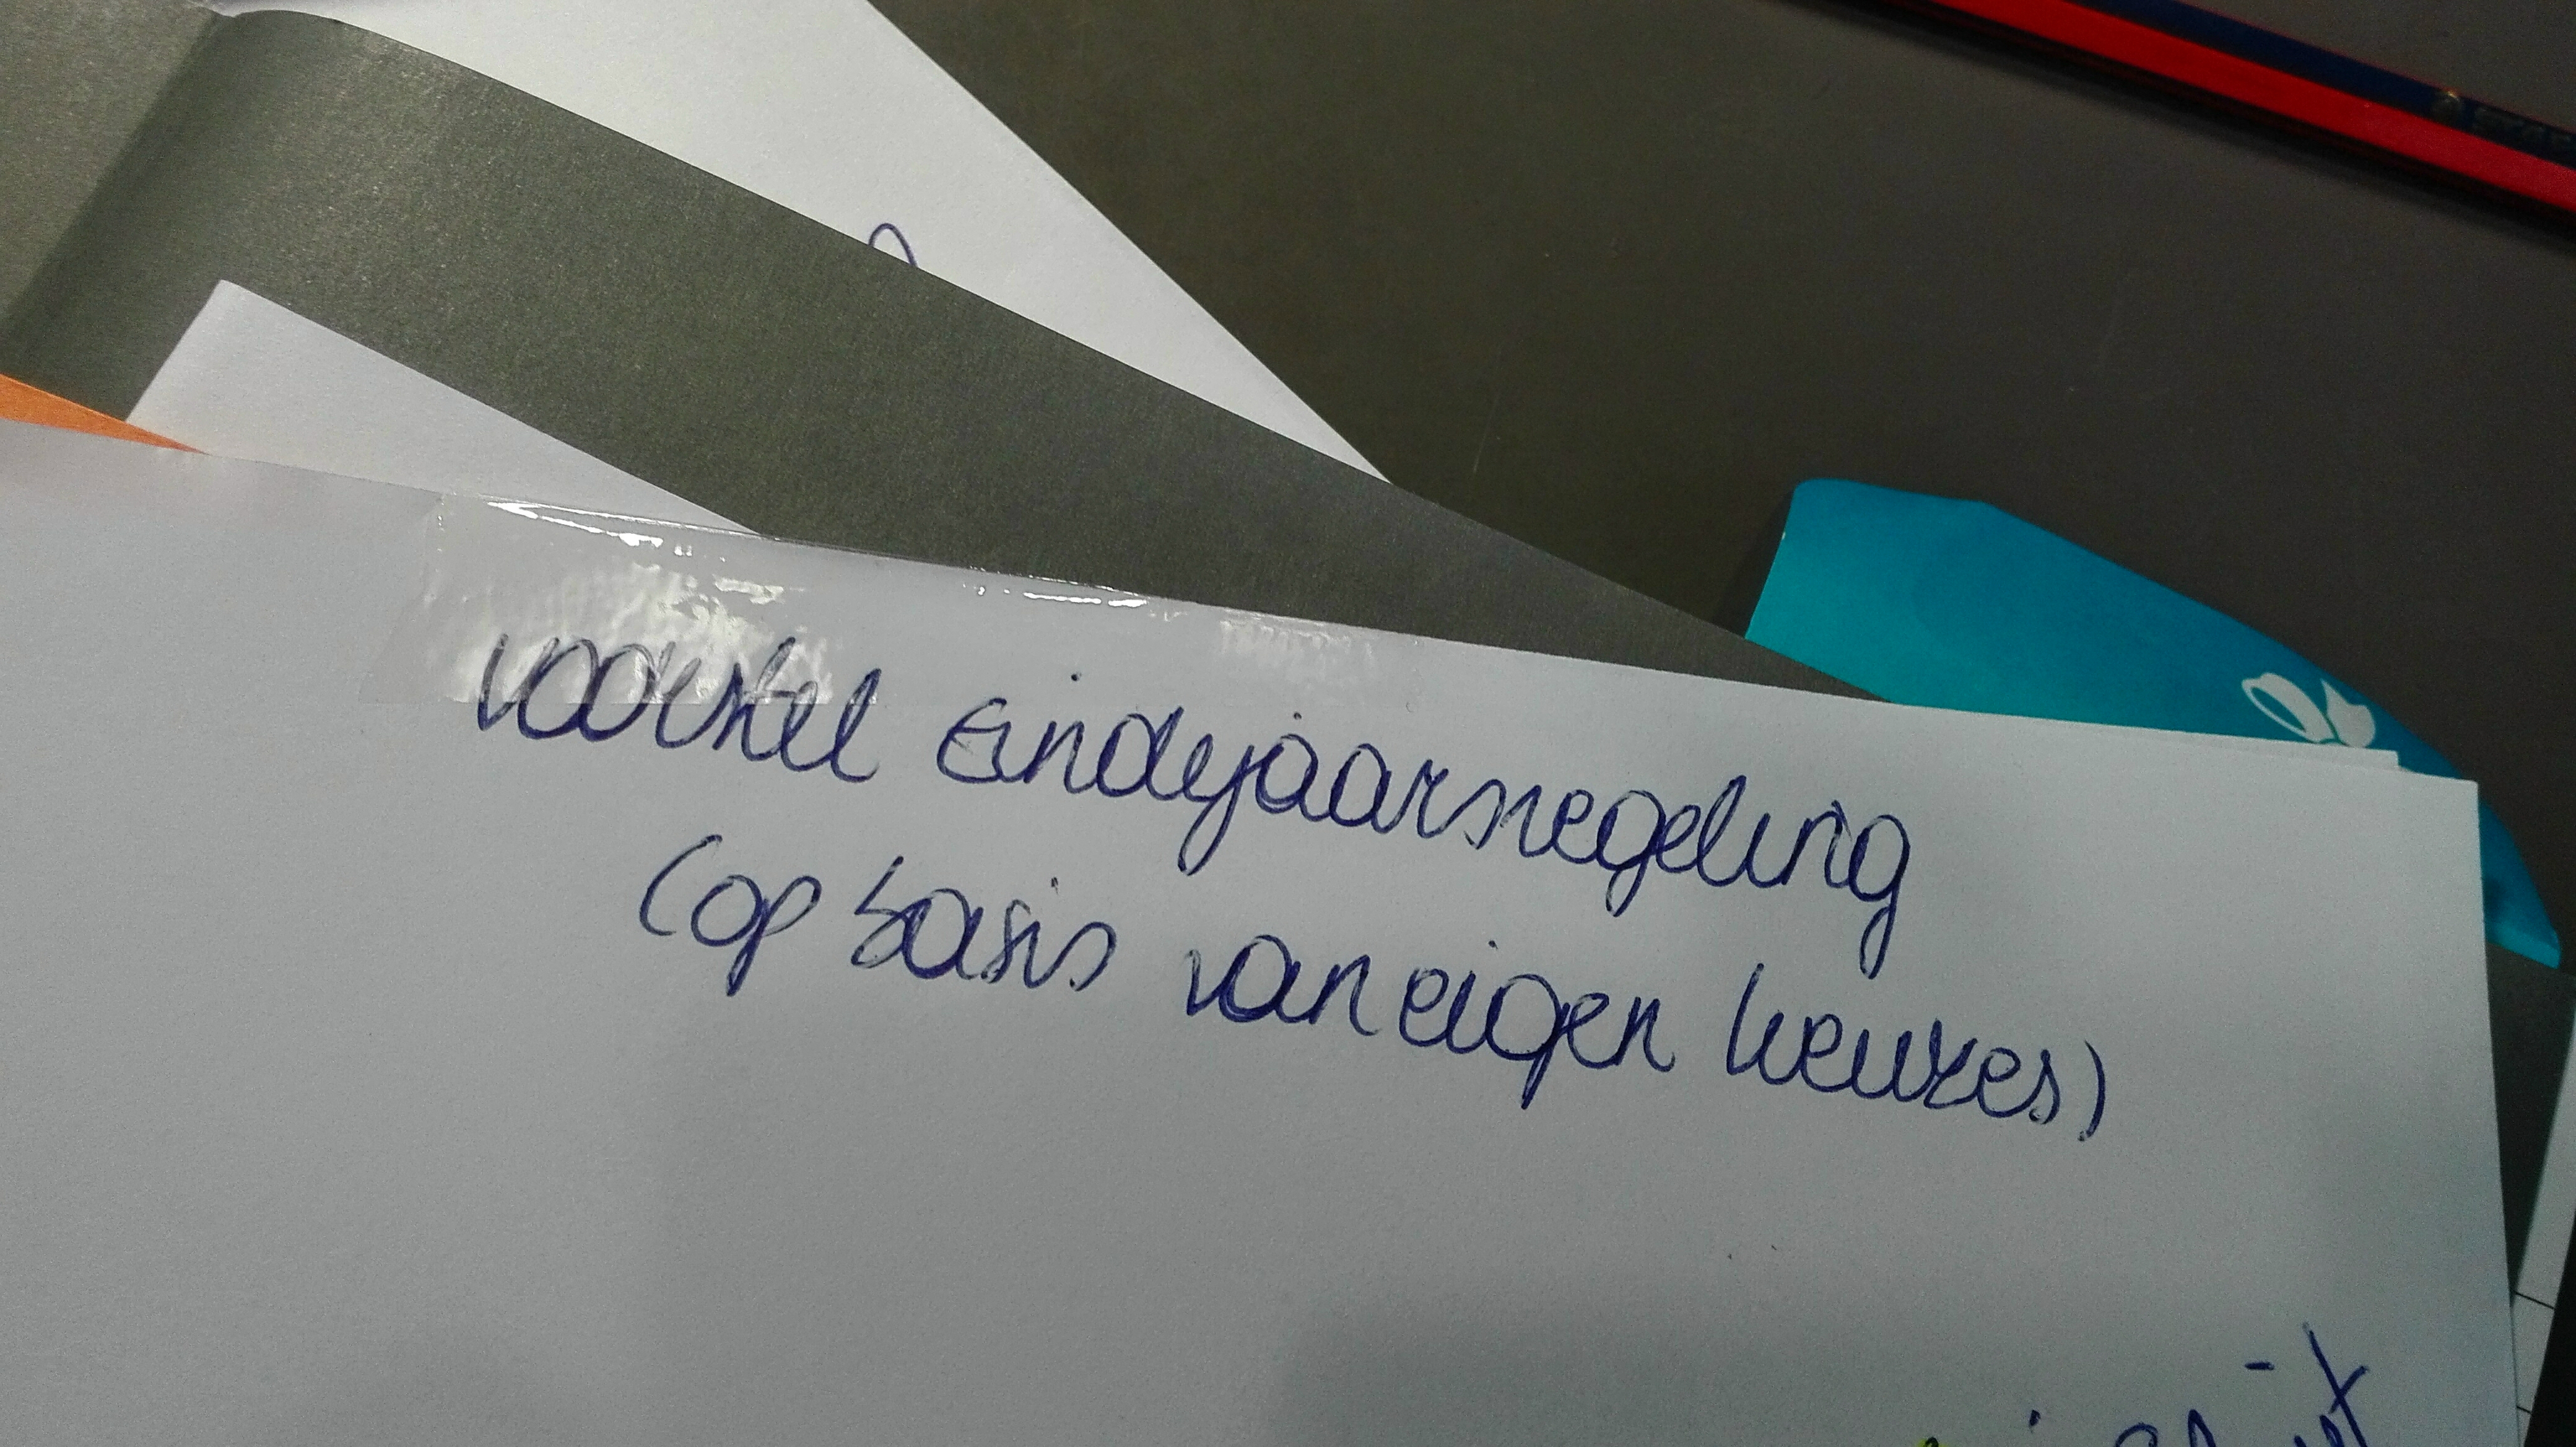 voorstel Eindejaarsregeling
(op basis van eigen keuzes)